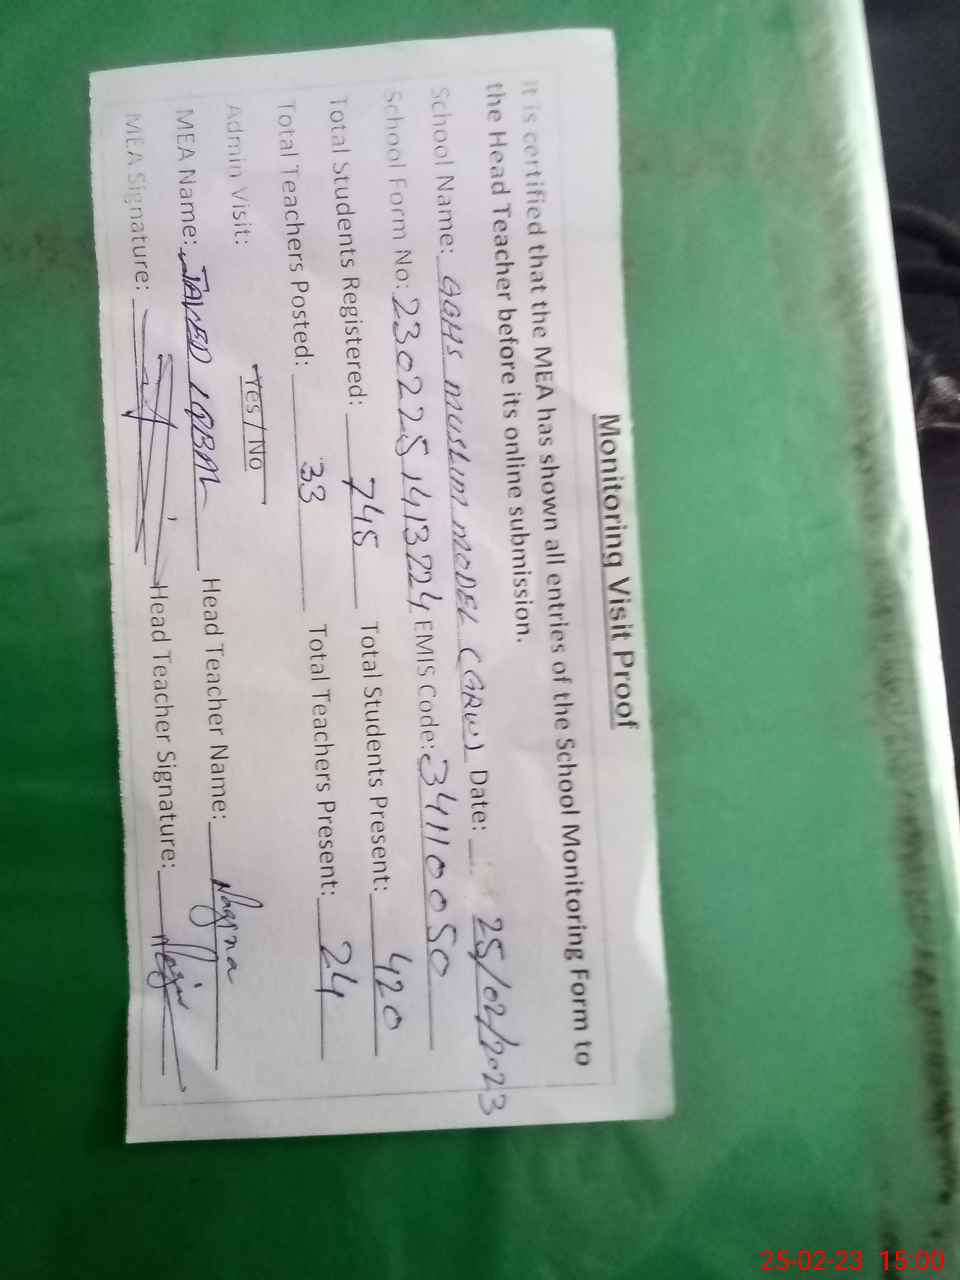 Monitoring Visit Proof
It is certified that the MEA has shown all entries of the School Monitoring Form to
the Head Teacher before its online submission.
School Name: GGHS MUSLIM MODEL (GRW) Date: 25/02/2023
School Form No: 230225141324 EMIS Code: 34110050
Total Students Registered: 745 Total Students Present: 420
Total Teachers Posted: 33 Total Teachers Present: 24
Admin Visit: Yes / No
MEA Name: JAVED IQBAL Head Teacher Name: Nagina
MEA Signature: Head Teacher Signature:
25-02-23 15:00